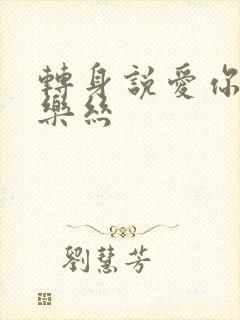 轉身說愛你
樂絲
劉慧芳